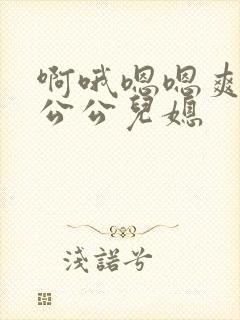 啊哦嗯嗯爽
公公兒媳
淺諾兮